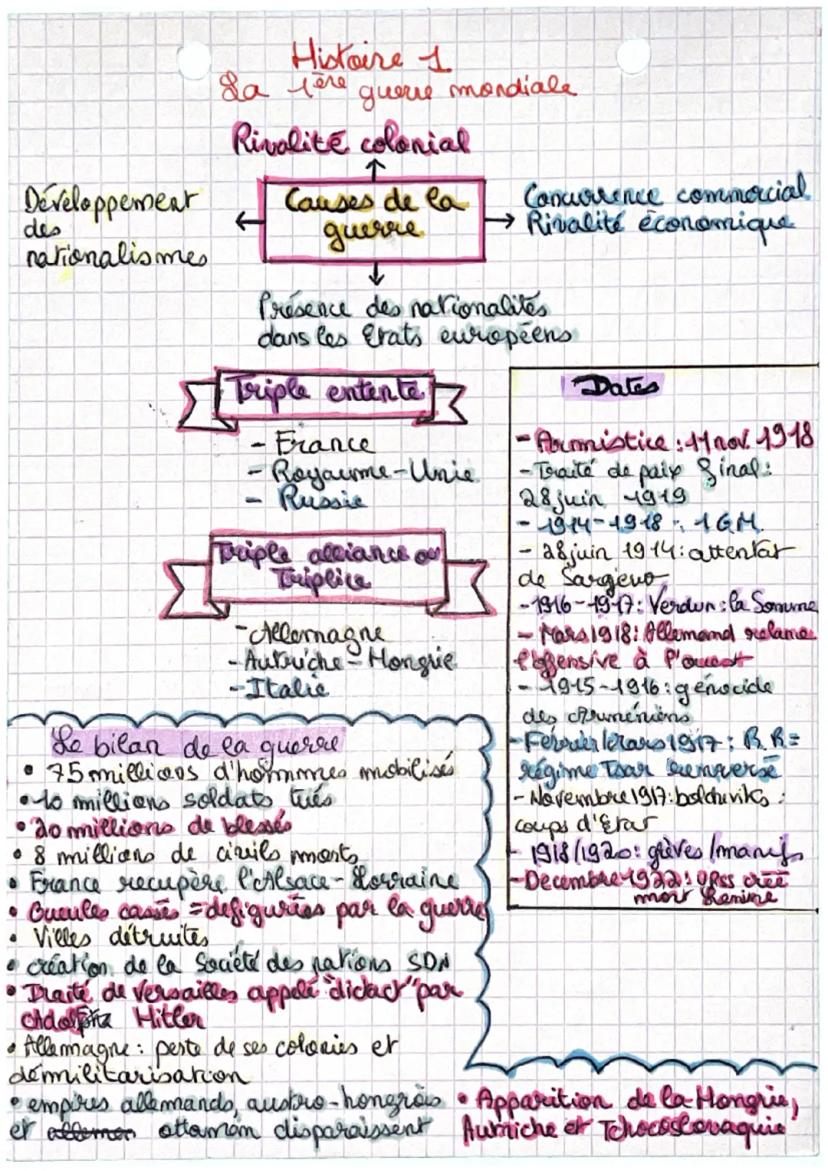 Histoire 1
La 1ère guerre mondiale
Rivalité colonial
Développement
des
nationalismes
Causes de la
guerre
Concurrence commercial
Rivalité économique
Présence des nationalités
dans les Etats européens
Triple entente
- France
- Royaume-Unie
- Russie
Triple alliance ou
Triplice
- Allemagne
- Autriche-Hongrie
- Italie
Dates
- Armistice : 11 nov. 1918
- Traité de paix final :
28 juin 1919
- 1914-1918 : 1 G.M.
- 28 juin 1914 : attentat
de Sargevo
- 1916-1917 : Verdun : la Somme
- Mars 1918 : Allemand relance
l'offensive à l'ouest
- 1915-1916 : génocide
des Arméniens
- Février/Mars 1917 : R.R =
régime Tsar renversé
- Novembre 1917 : bolchviks :
coups d'Etat
- 1918/1920 : grèves/manifs
- Decembre 1922 : URSS créé
mort Lenine
Le bilan de la guerre
• 75 millions d'hommes mobilisés
• 10 millions soldats tués
• 20 millions de blessés
• 8 millions de civils morts
• France recupère l'Alsace-Lorraine
• Gueules cassés = défigurées par la guerre
• Villes détruites
• création de la Société des nations SDN
• Traité de Versailles appelé "dictact" par
Adolf Hitler
• Allemagne : perte de ses colonies et
démilitarisation
• empires allemands, austro-hongrois
et ottoman disparaissent
• Apparition de la Hongrie,
Autriche et Tchocoslovaquie